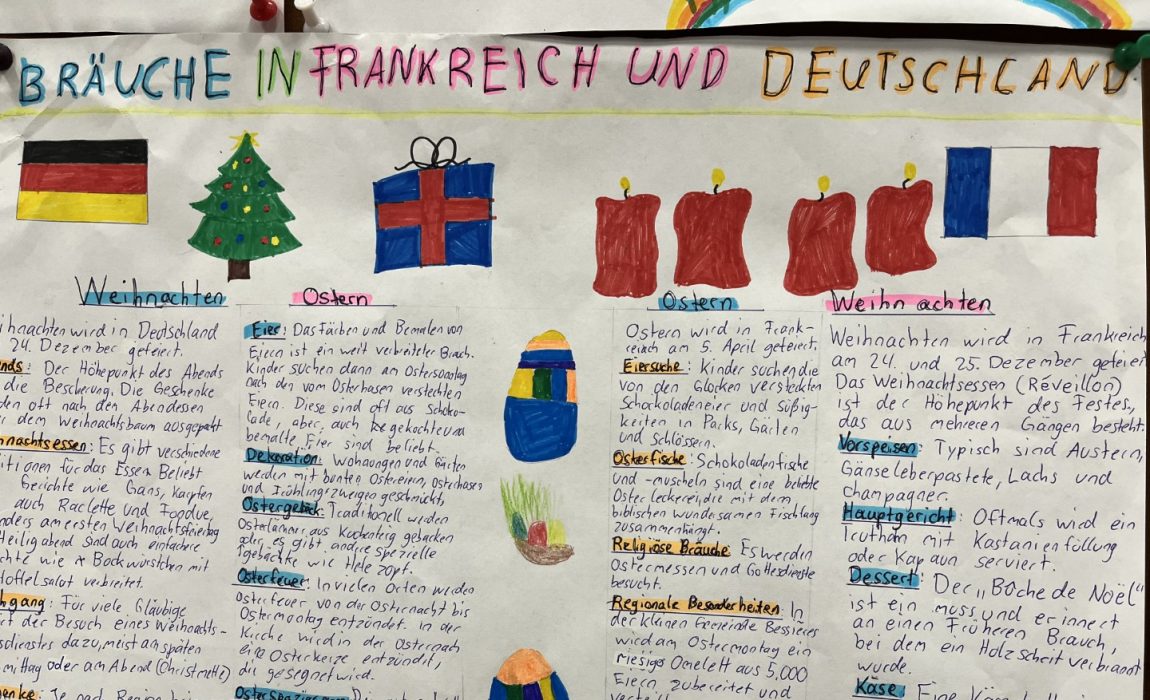 BRÄUCHE IN FRANKREICH UND DEUTSCHLAND
Weihnachten
hnachten wird in Deutschland
24. Dezember gefeiert.
nds: Der Höhepunkt des Abends
die Bescherung. Die Geschenke
den oft nach den Abendessen
dem Weihnachtsbaum ausgepakt
hnachtsessen: Es gibt verschiedene
itionen für das Essen Beliebt
Gerichte wie Gans, Karpfen
auch Raclette und Fondue,
nders am ersten Weihnachtsfeiertag
Heilig abend sind auch einfachere
chte wie Bockwürstchen mit
toffelsalat verbreitet.
hgang: Für viele Gläubige
rt der Besuch eines Weihnachts-
sdienstes dazu, meist am späten
mittag oder am Abend (Christmette)
enke: Je nach Region
Ostern
Eier: Das Färben und Bemalen von
Eiern ist ein weit verbreiteter Brauch.
Kinder suchen dann am Ostersonntag
nach den vom Osterhasen versteckten
Eiern. Diese sind oft aus Schoko-
lade, aber, auch gekochte und
bemalte Eier sind beliebt.
Dekoration: Wohnungen und Gärten
werden mit bunten Ostereien, Osterhasen
und Frühlingszweigen geschmückt,
Ostergebäck: Traditionell werden
Osterlämmer aus Kuchenteig gebacken
oder es gibt andre spezielle
gebäcke wie Hefe zopf.
Osterfeuer: In vielen Orten werden
Osterfeuer, von der Osternacht bis
Ostermontag entzündet. in der
Kirche wird in der Osternach
eine Osterkerze entzündet,
die gesegnet wird.
Ostern
Ostern wird in Frank-
reich am 5. April gefeiert.
Eiersuche: Kinder suchen die
von den Glocken versteckten
Schockoladeneier und Süßig-
keiten in Parks, Gärten
und Schlössern.
Osterfische: Schokoladenfische
und -muscheln sind eine beliebte
Oster leckerei, die mit dem,
biblischen wundersamen Fischfang
zusammenhängt.
Religiöse Bräuche: Es werden
Ostermessen und Gottesdienste
besucht.
Regionale Besonderheiten: In
der kleinen Gemeinde Bessières
wird am Ostermontag ein
riesiges Omelett aus 5.000
Eiern zubereitet und
Weihnachten
Weihnachten wird in Frankreich
am 24. und 25. Dezember gefeier
Das Weihnachtsessen (Réveillon)
ist der Höhepunkt des Festes,
das aus mehreren Gängen besteht.
Vorspeisen: Typisch sind Austern,
Gänseleberpastete, Lachs und
Champagner.
Hauptgericht: Oftmals wird ein
Truthan mit Kastanienfüllung
oder Kapaun serviert.
Dessert: Der „Bûche de Noël“
ist ein muss und erinnert
an einen Früheren Brauch,
bei dem ein Holzscheit verbrannt
wurde.
Käse: Eine